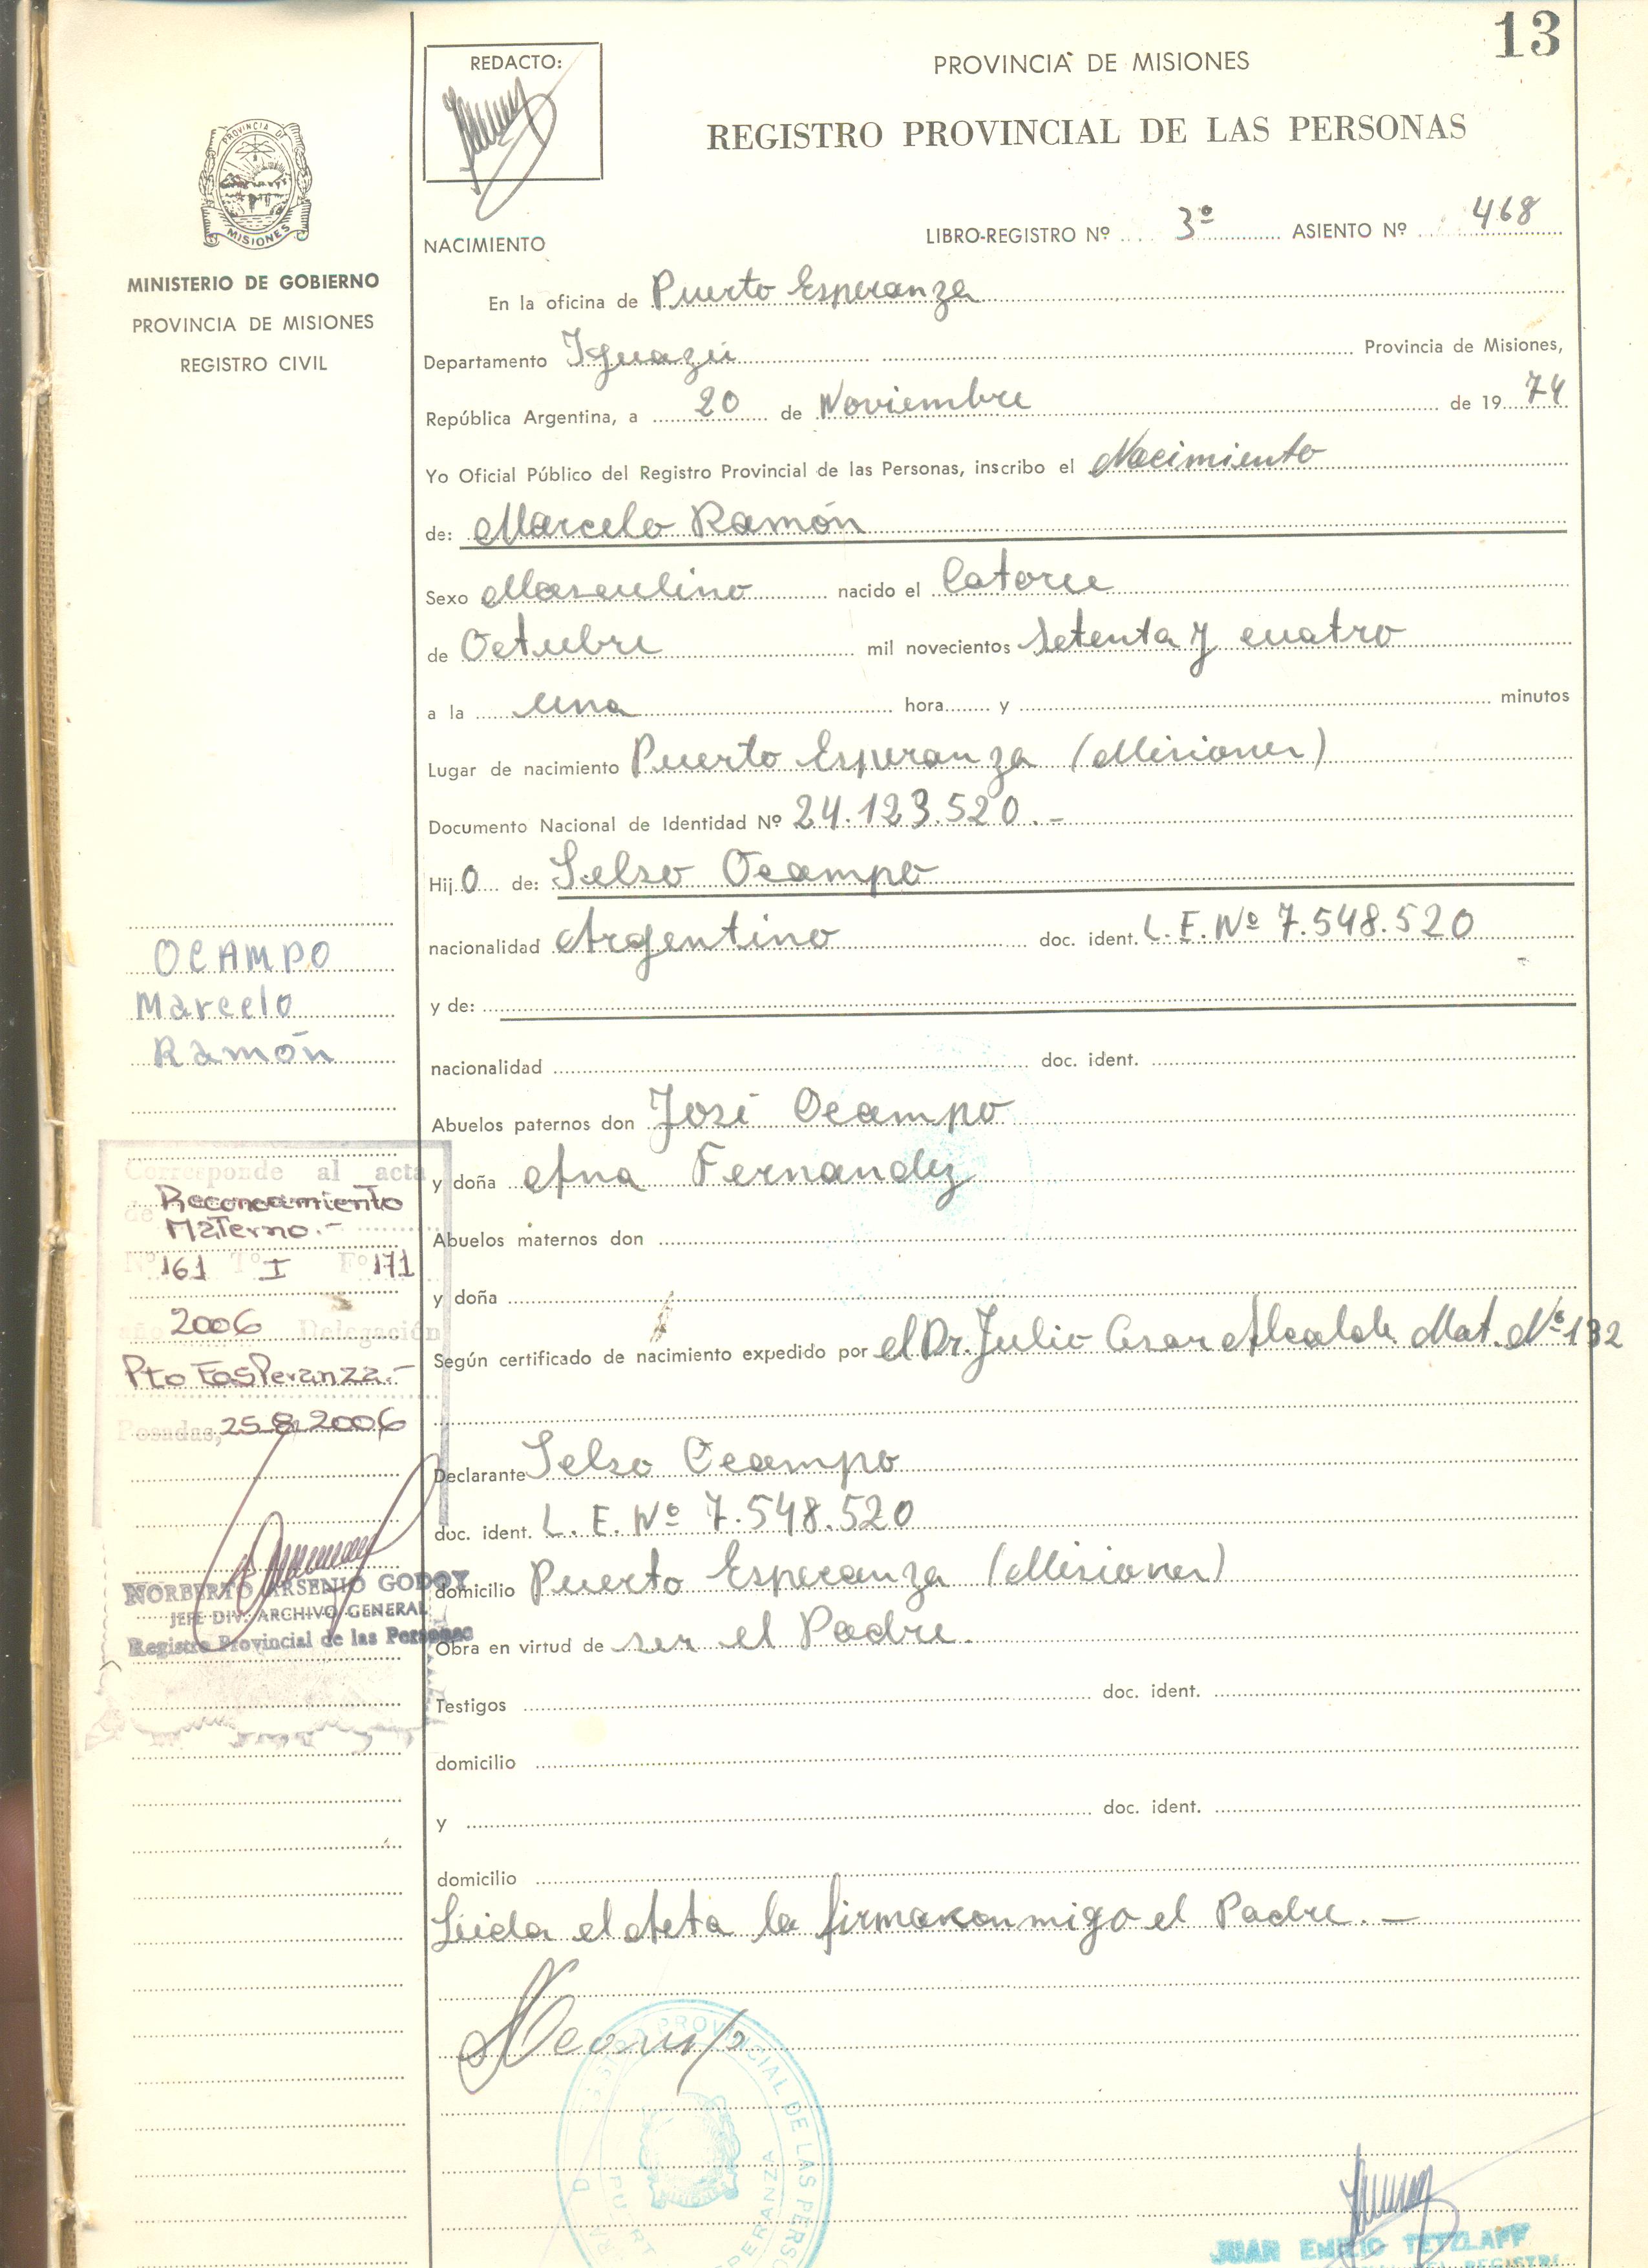 13
REDACTO:
PROVINCIA DE MISIONES
REGISTRO PROVINCIAL DE LAS PERSONAS
PROVINCIA DE
MISIONES
MINISTERIO DE GOBIERNO
PROVINCIA DE MISIONES
REGISTRO CIVIL
NACIMIENTO
LIBRO-REGISTRO Nº 3º ASIENTO Nº 468
En la oficina de Puerto Esperanza
Departamento Iguazú Provincia de Misiones,
República Argentina, a 20 de Noviembre de 1974
Yo Oficial Público del Registro Provincial de las Personas, inscribo el Nacimiento
de: Marcelo Ramón
Sexo Masculino nacido el Catorce
de Octubre mil novecientos Setenta y cuatro
a la una hora y minutos
Lugar de nacimiento Puerto Esperanza (Misiones)
Documento Nacional de Identidad Nº 24.123.520.-
Hijo de: Selso Ocampo
nacionalidad Argentino doc. ident. L.E. Nº 7.548.520
y de:
nacionalidad doc. ident.
Abuelos paternos don José Ocampo
y doña Ana Fernandez
Abuelos maternos don
y doña
Según certificado de nacimiento expedido por el Dr. Julio Cesar Alcalde Mat. Nº 132
Declarante Selso Ocampo
doc. ident. L.E. Nº 7.548.520
domicilio Puerto Esperanza (Misiones)
Obra en virtud de ser el Padre.
Testigos doc. ident.
domicilio
y doc. ident.
domicilio
Leida el Acta la firma conmigo el Padre.-
OCAMPO
Marcelo
Ramón
Corresponde al acta
de Reconocimiento
Materno.-
Nº 161 Tº I Fº 171
año 2006 Delegación
Pto Esperanza.-
Posadas, 25 8 2006
NORBERTO ARSENIO GODOY
JEFE DIV. ARCHIVO GENERAL
Registro Provincial de las Personas
PROVINCIAL DE LAS
JUAN EMILIO TETZLAFF